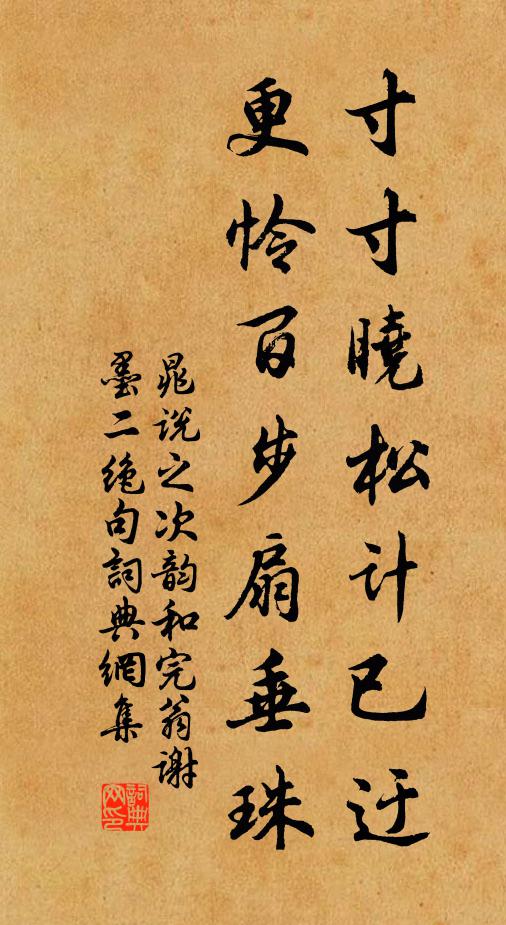 寸寸曉松计已迂
更怜百步扇垂珠
晁说之次韵和完翁谢
墨二绝句詞典網集
詞典
网印